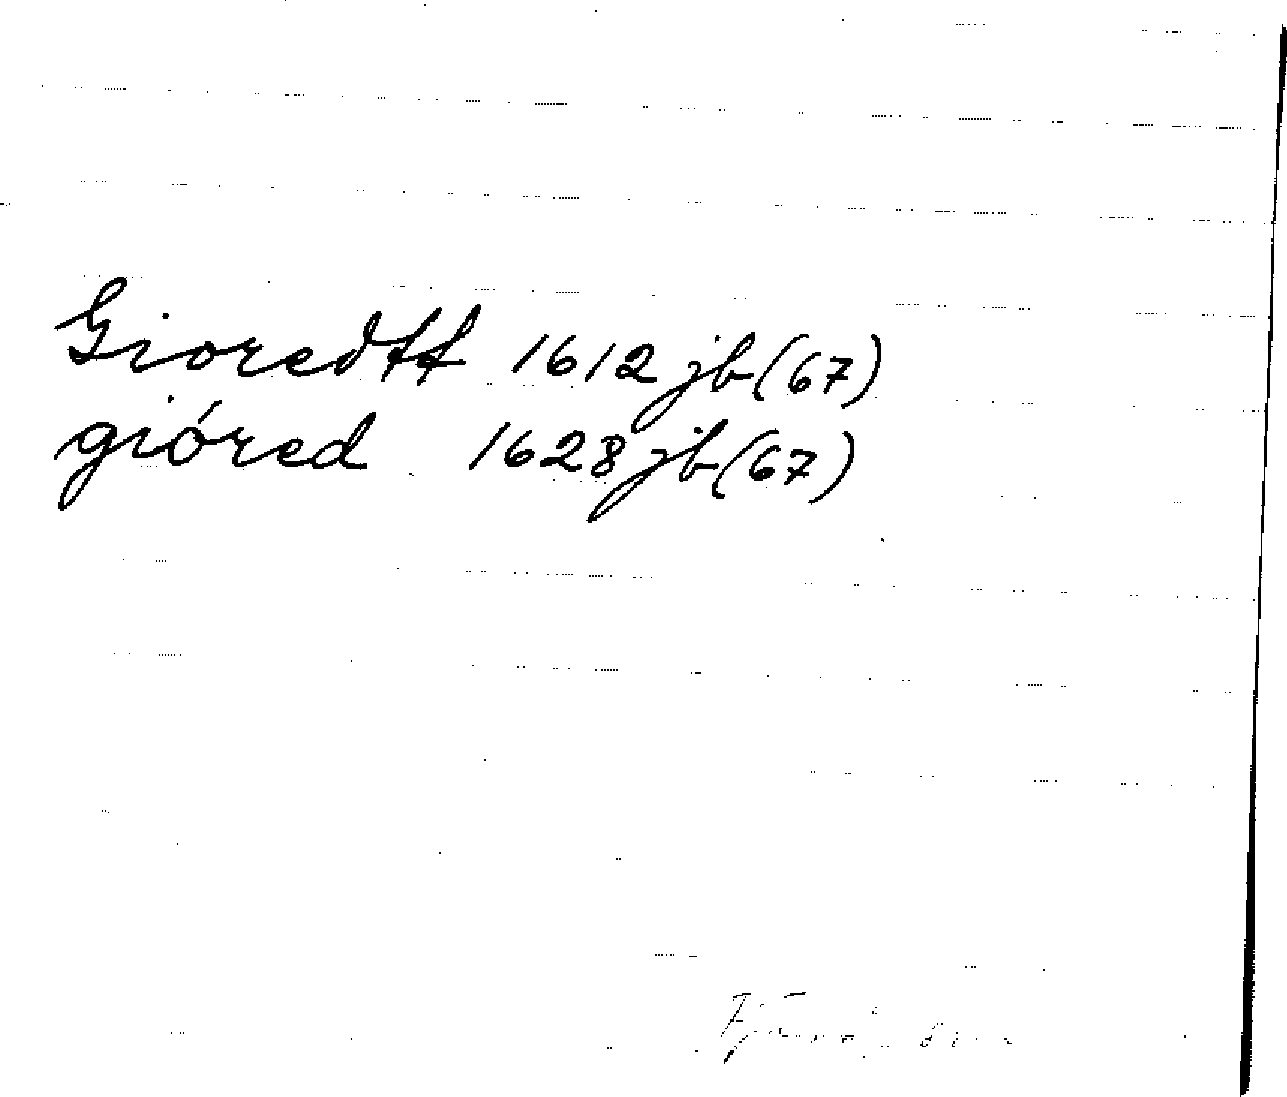 Gioredtt 1612 jb (67)
gióred 1628 jb (67)